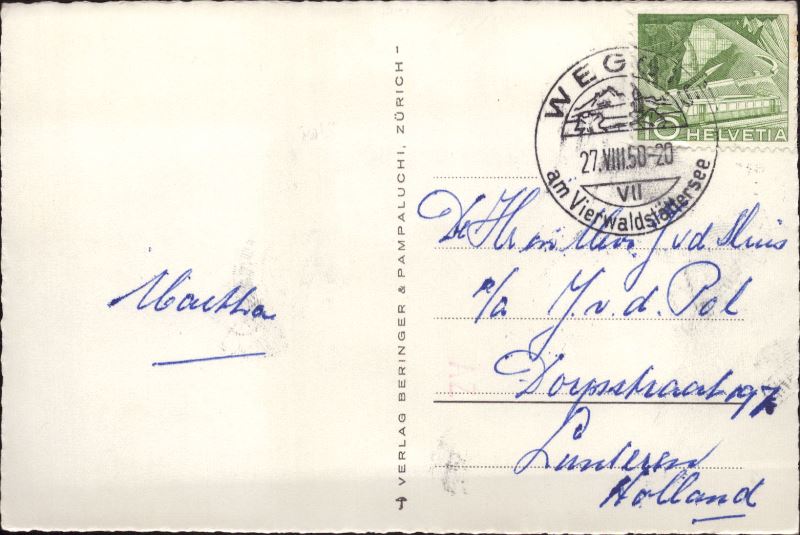 Martha
VERLAG BERINGER & PAMPALUCHI, ZÜRICH -
10 HELVETIA
WEGGIS
27.VIII.50-20
VII
am Vierwaldstättersee
De Hr en Mevr J vd Sluis
p/a J. v. d. Pol
Dorpsstraat 197
Lunteren
Holland